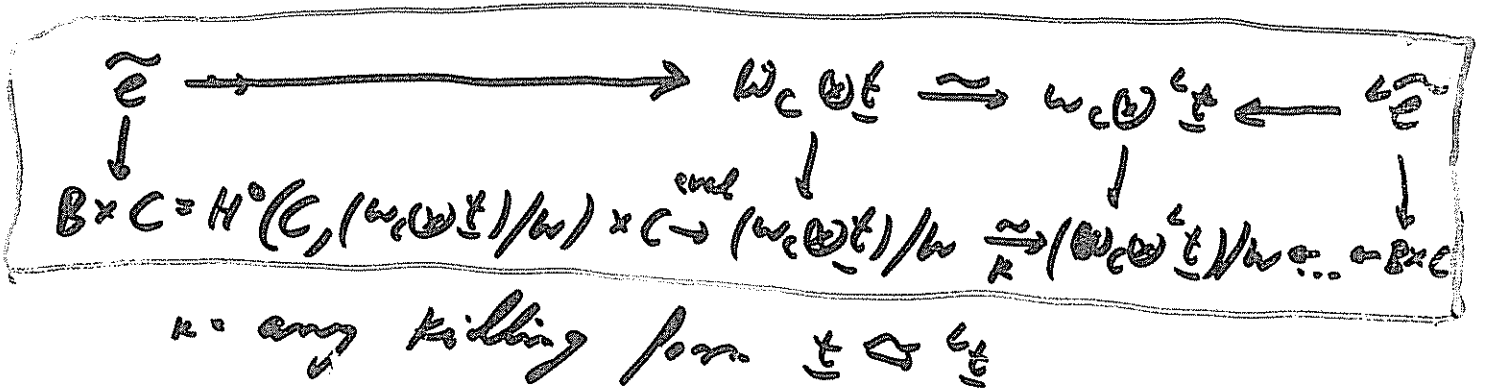 ẽ → ω_C ⊗ t ≅→ ω_C ⊗ ᴸt ← ᴸẽ
B × C = H⁰(C, (ω_C ⊗ t)/W) × C →(eval) (ω_C ⊗ t)/W ≅→(κ) (ω_C ⊗ ᴸt)/W ← ... ← B × C
κ = any Killing form t ≅ ᴸt